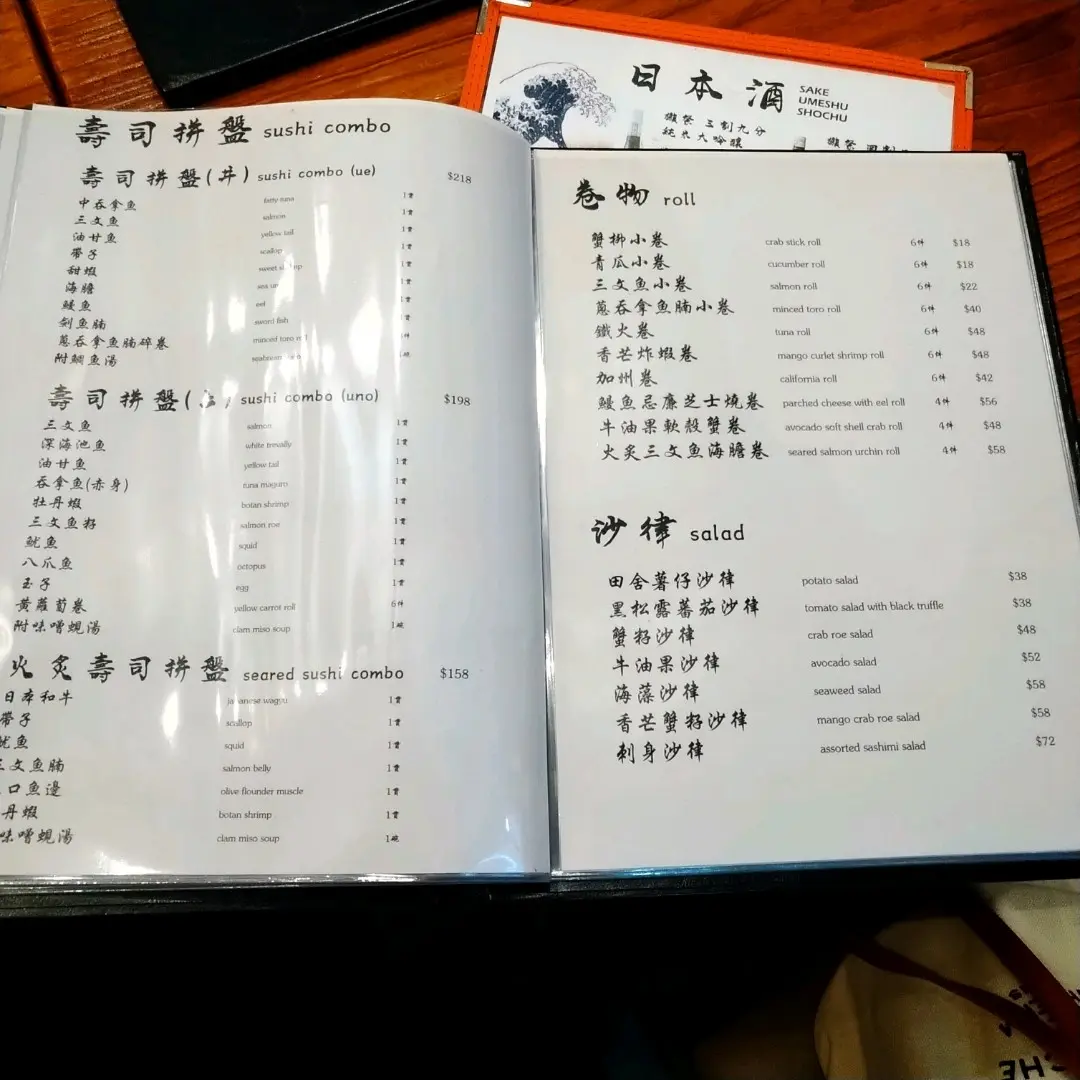 日本酒 SAKE
UMESHU
SHOCHU
獺祭 三割九分
純米大吟釀
獺祭
壽司拼盤 sushi combo
壽司拼盤 sushi combo (ue) $218
中吞拿魚 fatty tuna 1貫
三文魚 salmon 1貫
油甘魚 yellow tail 1貫
帶子 scallop 1貫
甜蝦 sweet 1貫
海膽 sea 1貫
鰻魚 eel 1貫
劍魚腩 sword fish 1貫
蔥吞拿魚腩碎卷 minced toro
附鯛魚湯 seabream
壽司拼盤 sushi combo (uno) $198
三文魚 salmon 1貫
深海池魚 white trevally 1貫
油甘魚 yellow tail 1貫
吞拿魚(赤身) tuna maguro 1貫
牡丹蝦 botan shrimp 1貫
三文魚籽 salmon roe 1貫
魷魚 squid 1貫
八爪魚 octopus 1貫
玉子 egg 1貫
黃蘿蔔卷 yellow carrot roll 6件
附味噌蜆湯 clam miso soup 1碗
火炙壽司拼盤 seared sushi combo $158
日本和牛 japanese wagyu 1貫
帶子 scallop 1貫
魷魚 squid 1貫
三文魚腩 salmon belly 1貫
口魚邊 olive flounder muscle 1貫
丹蝦 botan shrimp 1貫
味噌蜆湯 clam miso soup 1碗
卷物 roll
蟹柳小卷 crab stick roll 6件 $18
青瓜小卷 cucumber roll 6件 $18
三文魚小卷 salmon roll 6件 $22
蔥吞拿魚腩小卷 minced toro roll 6件 $40
鐵火卷 tuna roll 6件 $48
香芒炸蝦卷 mango curlet shrimp roll 6件 $48
加州卷 california roll 6件 $42
鰻魚忌廉芝士燒卷 parched cheese with eel roll 4件 $56
牛油果軟殼蟹卷 avocado soft shell crab roll 4件 $48
火炙三文魚海膽卷 seared salmon urchin roll 4件 $58
沙律 salad
田舍薯仔沙律 potato salad $38
黑松露蕃茄沙律 tomato salad with black truffle $38
蟹籽沙律 crab roe salad $48
牛油果沙律 avocado salad $52
海藻沙律 seaweed salad $58
香芒蟹籽沙律 mango crab roe salad $58
刺身沙律 assorted sashimi salad $72